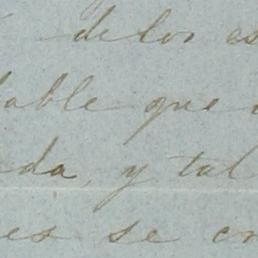 de los es
dable que
da, y tal
es se cr